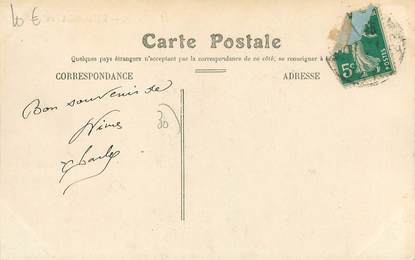 10 €
Carte Postale
Quelques pays étrangers n'acceptant pas la correspondance de ce côté, se renseigner à
CORRESPONDANCE
ADRESSE
5c
POSTES
Bon souvenir de
Nimes
Charles
30